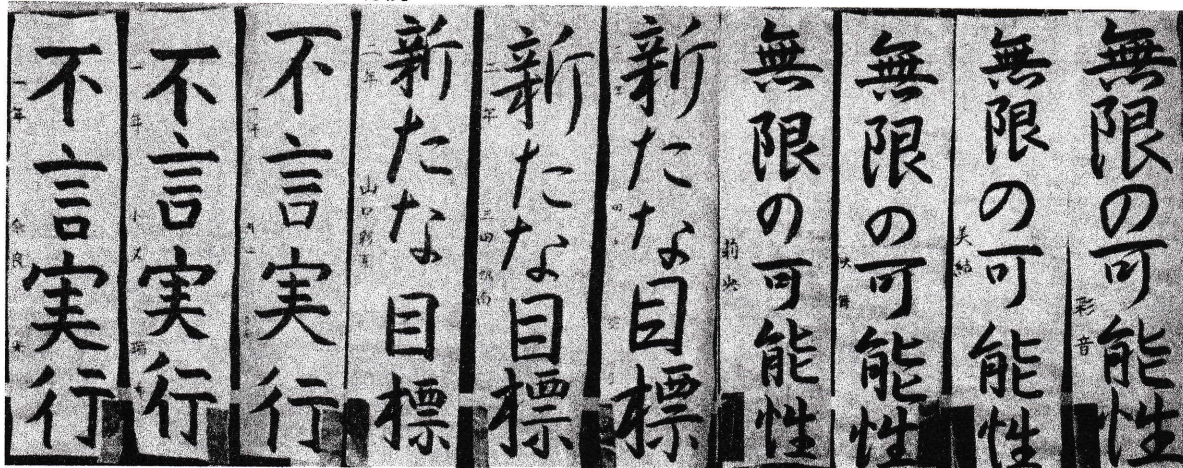 無限の可能性
彩音
無限の可能性
美結
無限の可能性
無限の可能性
莉央
新たな目標
新たな目標
二年
新たな目標
二年
山口彩音
不言実行
一年
不言実行
一年
不言実行
一年